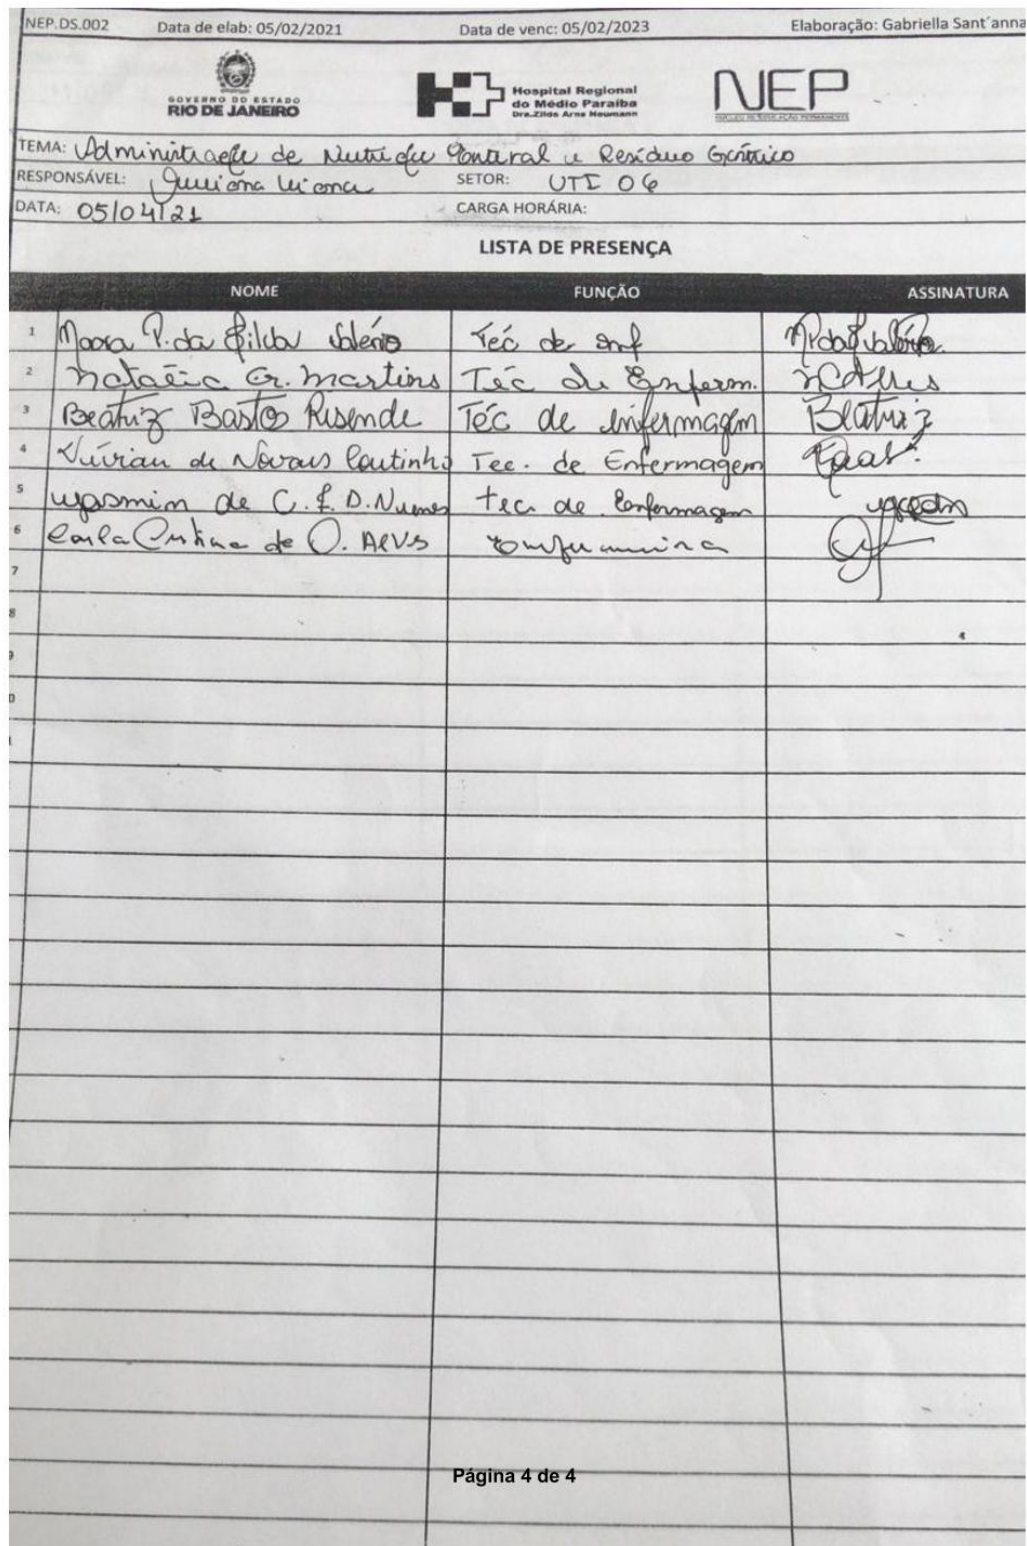 NEP.DS.002 Data de elab: 05/02/2021 Data de venc: 05/02/2023 Elaboração: Gabriella Sant´anna
GOVERNO DO ESTADO
RIO DE JANEIRO
Hospital Regional
do Médio Paraíba
Dra.Zilda Arns Neumann
NEP
NÚCLEO DE EDUCAÇÃO PERMANENTE
TEMA: Administração de Nutrição Parenteral e Resíduo Gástrico
RESPONSÁVEL: Juliana Viana SETOR: UTI 06
DATA: 05/04/21 CARGA HORÁRIA:
LISTA DE PRESENÇA
NOME FUNÇÃO ASSINATURA
1 P. da Silva Valério Téc de enf
2 Natália G. Martins Téc de Enferm.
3 Beatriz Bastos Resende Téc de enfermagem Beatriz
4 Vívian de Novais Coutinho Tec. de Enfermagem
5 Yasmim de C. F. D. Nunes tec de Enfermagem
6 Carla Cristina de O. Alves Enfermeira
7
8
Página 4 de 4